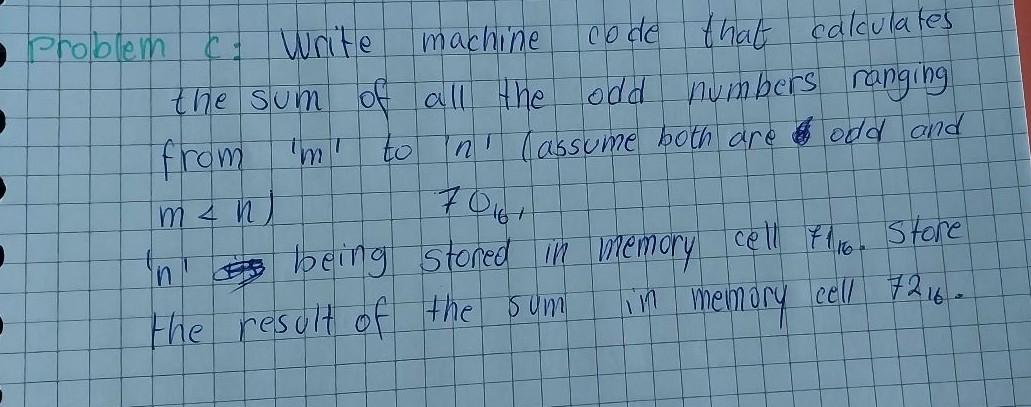 Problem C: Write machine code that calculates
the sum of all the odd numbers ranging
from 'm' to 'n' (assume both are odd and
m < n) 70₁₆,
'n' being stored in memory cell 71₁₆. Store
the result of the sum in memory cell 72₁₆.